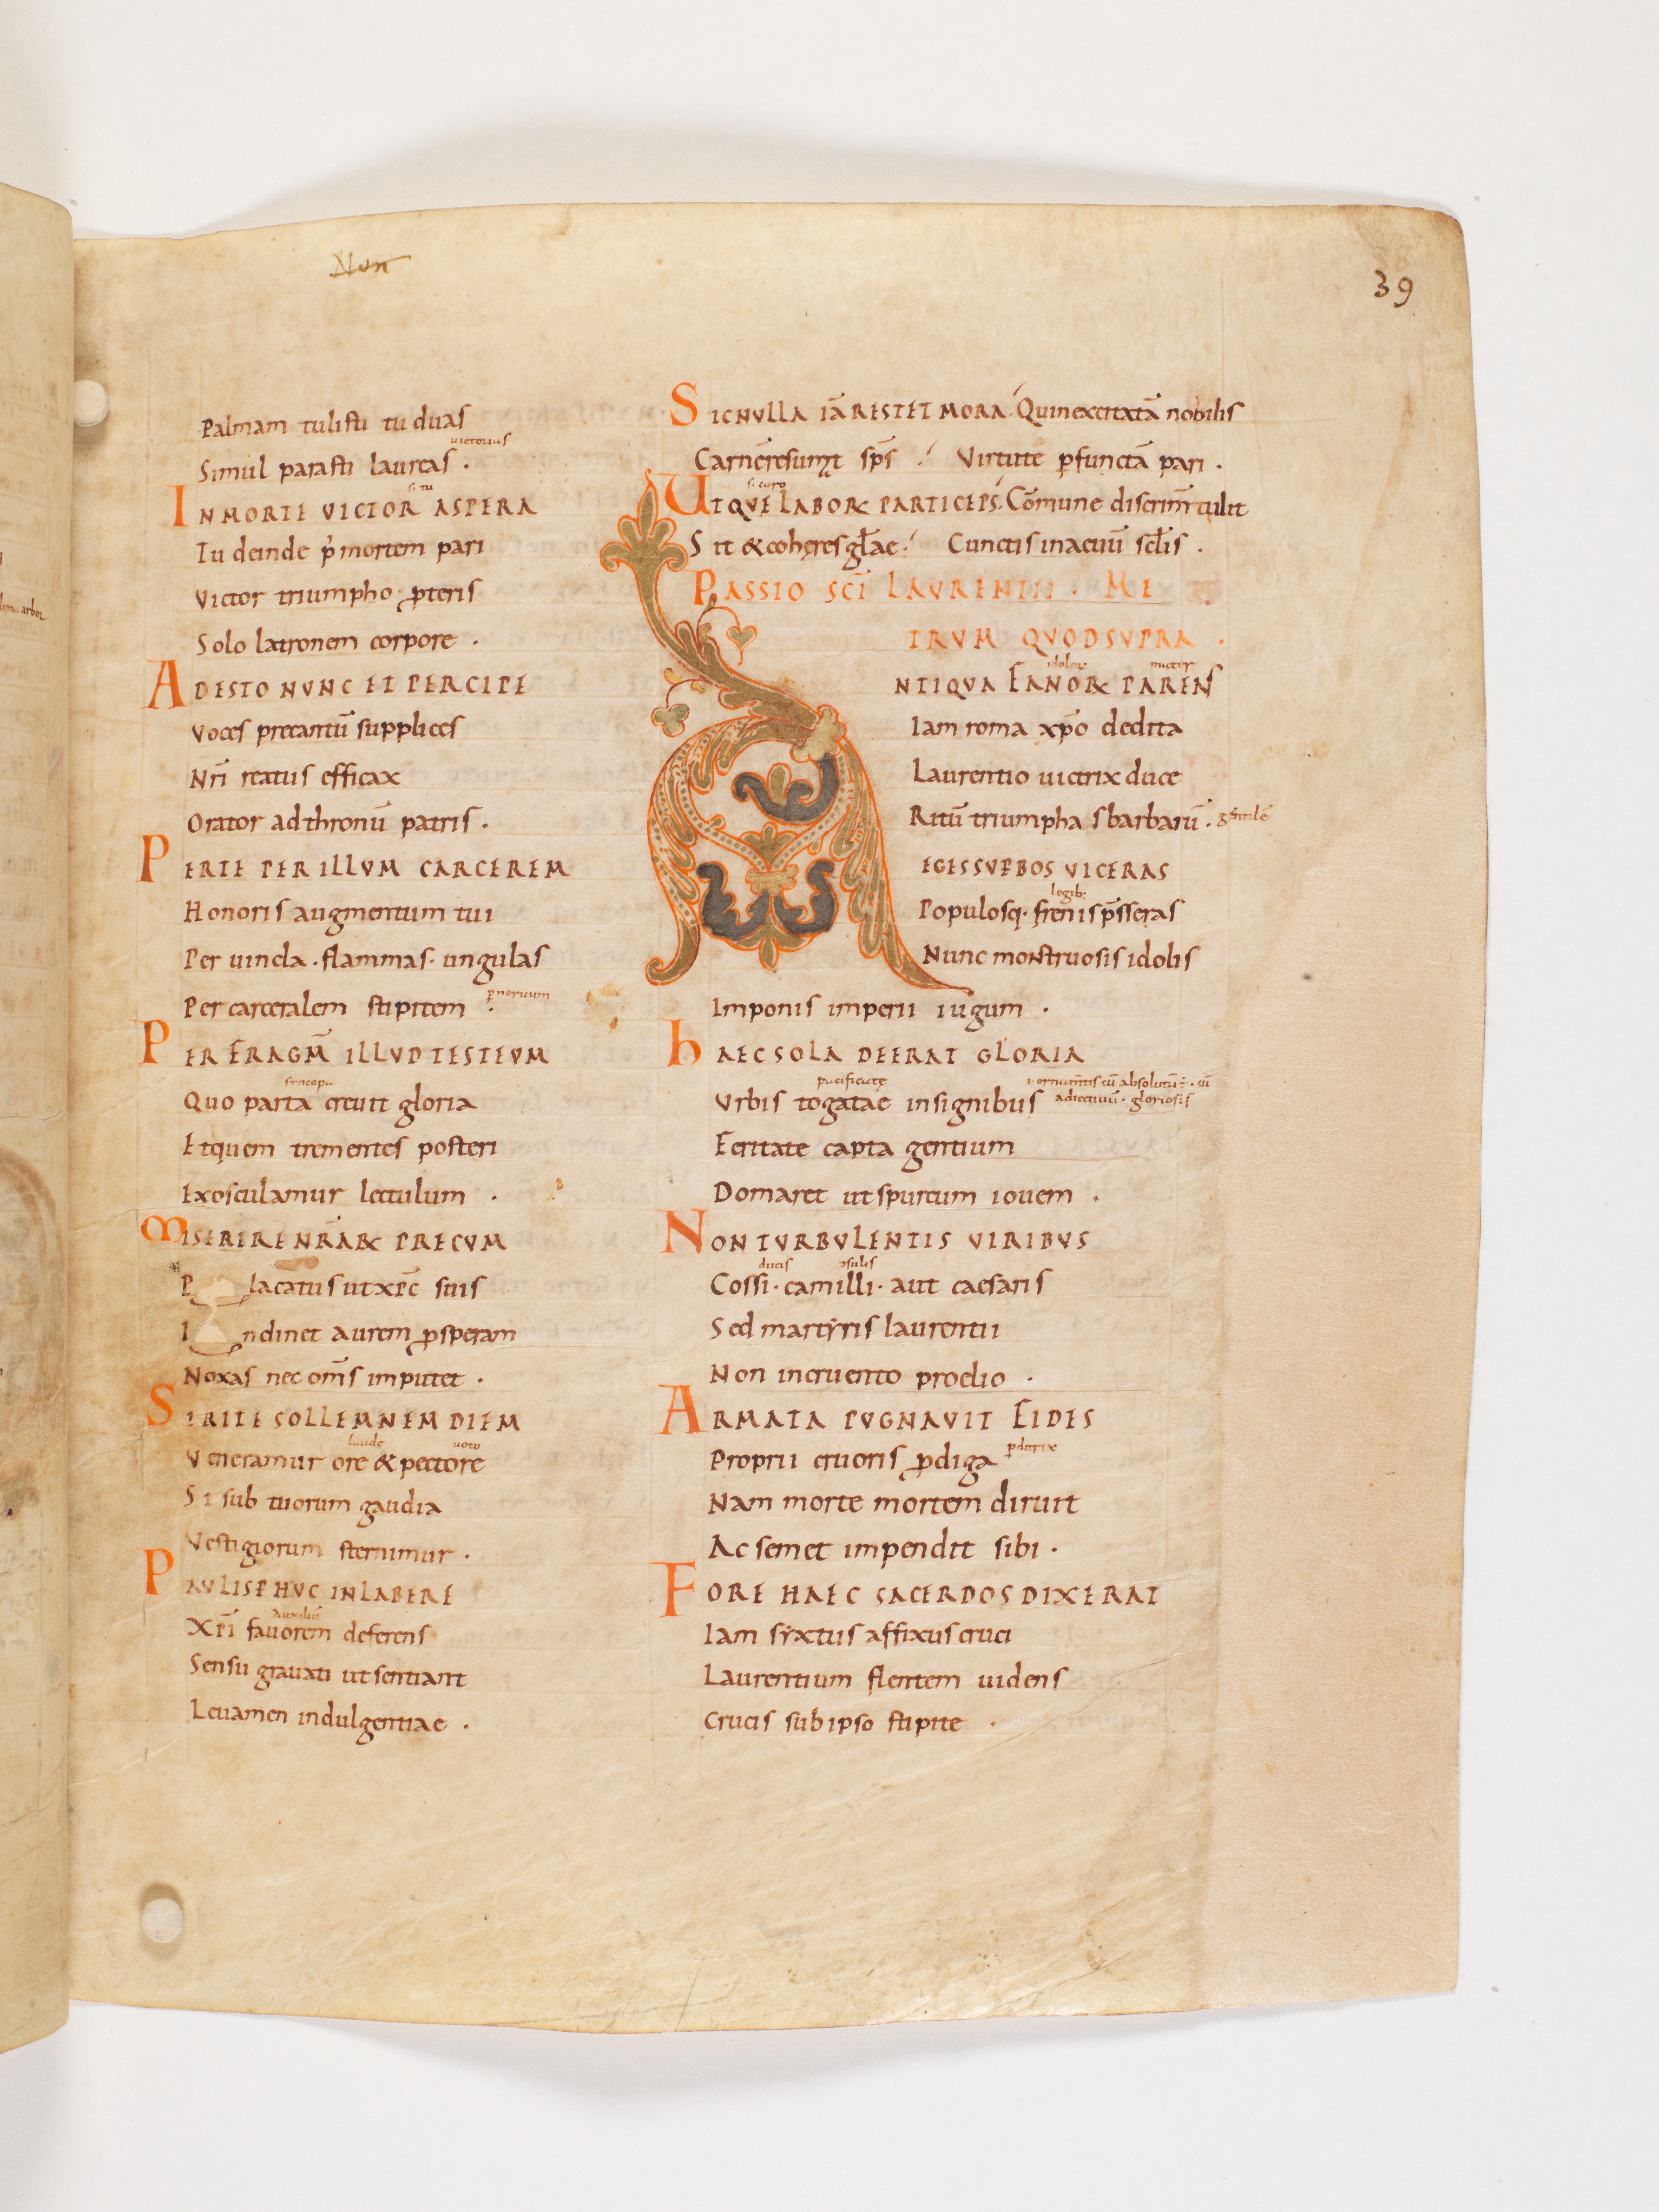 Non
39
Palmam tulisti tu duas
uictorias
Simul parasti laureas .
s. tu
IN MORTE VICTOR ASPERA
Tu deinde p̓ mortem pari
Victor triumpho ꝓteris
Solo latronem corpore .
ADESTO NUNC ET PERCIPE
Voces precantū supplices
Nrī reatus efficax
Orator ad thronū patris .
PERTE PER ILLVM CARCEREM
Honoris augmentum tui
Per uincla . flammas . ungulas
Per carceralem stipitem .
PER FRAGM̄ ILLVD TESTEVM
syncopa
Quo parta creuit gloria
Et quem trementes posteri
Exosculamur lectulum .
MISERERE NRĀRꝜ PRECVM
Placatus ut xp̄c suis
Indinet aurem ꝓsperam
Noxas nec om̄s imputet .
SI RITE SOLLEMNEM DIEM
laude uoto
Veneramur ore & pectore
Si sub tuorum gaudia
Vestigiorum sternimur .
PAVLISP HVC INLABERE
Auxiliū
Xpī fauorem deferens
Sensu grauati ut sentiant
Leuamen indulgentiae .
SIC NVLLA IĀ RESTET MORA . Quin excitatā nobilis
Carnē resumat sp̄s . Virtute ꝑfunctā pari .
VTQVE LABORꝜ PARTICEPS . Cōmune discrim̄ tulit
Sit & coheres gl̄ae . Cunctis in aeuū sc̄lis .
PASSIO SC̄I LAVRENTII . ME
TRVM QVOD SVPRA .
idolorꝝ mater
ANTIQVA FANORꝜ PARENS
Iam roma xp̄o dedita
Laurentio uictrix duce
Ritū triumphas barbarū .
REGES SVPBOS VICERAS
legib;
Populosq; frenis p̄sseras
Nunc monstruosis idolis
Imponis imperii iugum .
HAEC SOLA DEERAT GLORIA
pacificatę
Vrbis togatae insignibus
adiectiuū . gloriosis
Feritate capta gentium
Domaret ut spurcum iouem .
NON TVRBVLENTIS VIRIBVS
ducis ↄsulis
Cossi . camilli . aut caesaris
Sed martyris laurentii
Non incruento proelio .
ARMATA PVGNAVIT FIDES
Proprii cruoris ꝓdiga
Nam morte mortem diruit
Ac semet impendit sibi .
FORE HAEC SACERDOS DIXERAT
Iam syxtus affixus cruci
Laurentium flentem uidens
Crucis sub ipso stipite .